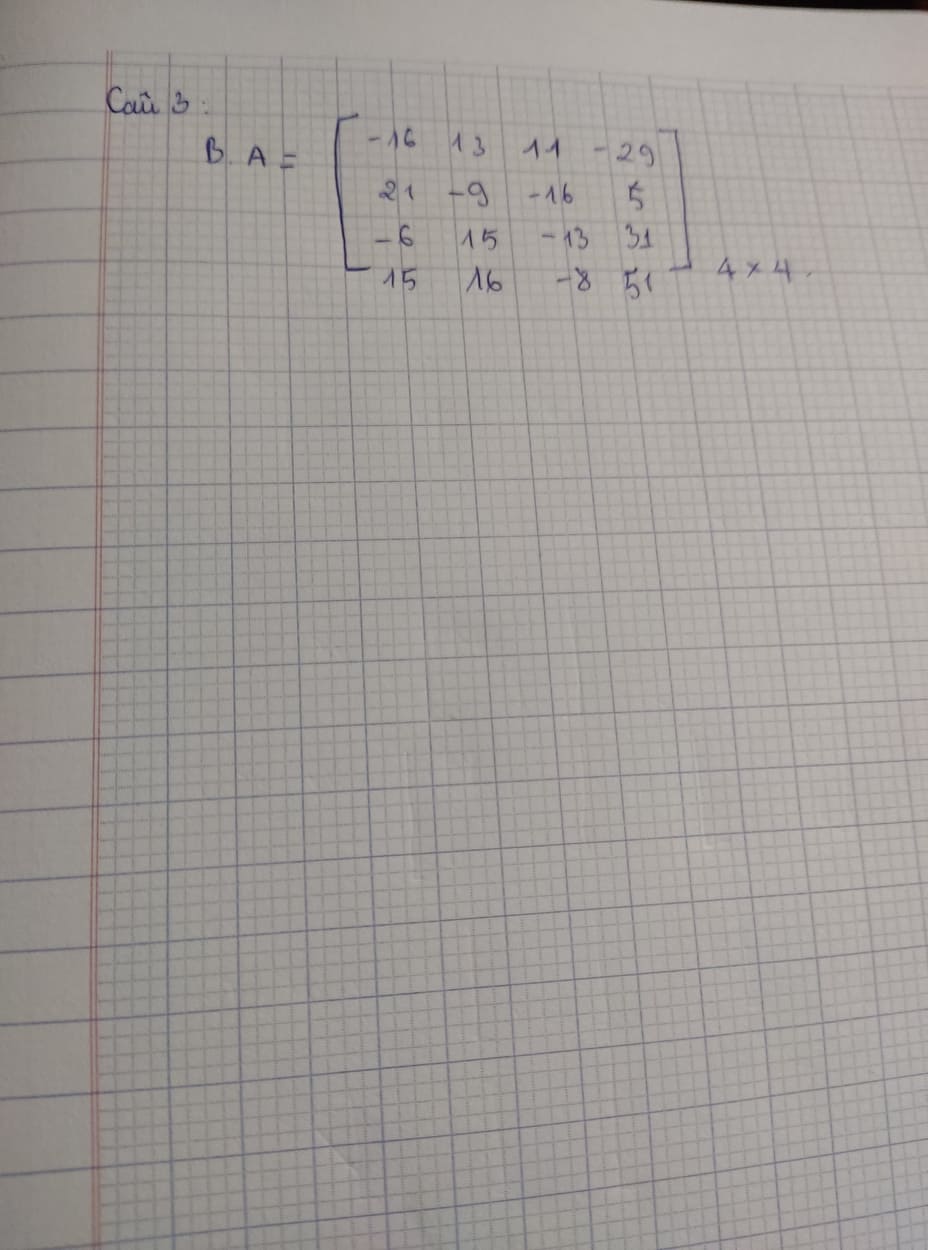 Câu 3:
B. A = [ -16 13 11 -29
21 -9 -16 5
-6 15 -13 31
15 16 -8 51 ] 4 × 4.